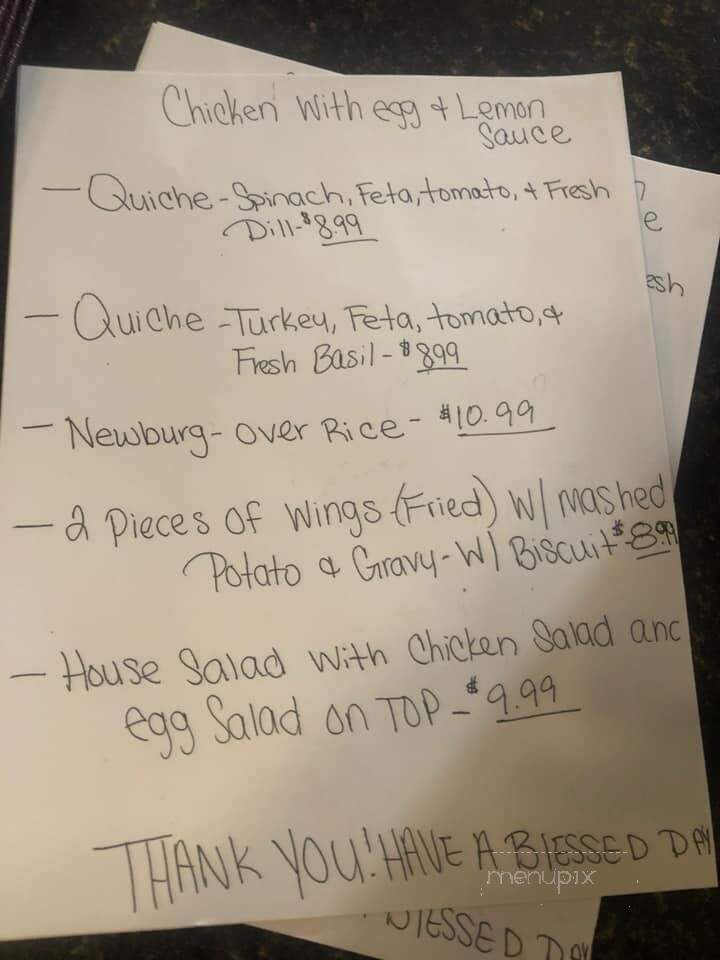 Chicken with egg & Lemon
Sauce
— Quiche - Spinach, Feta, tomato, & Fresh
Dill - $8.99
— Quiche - Turkey, Feta, tomato, &
Fresh Basil - $899
— Newburg - over Rice - $10.99
— 2 Pieces of Wings (Fried) W/ mashed
Potato & Gravy - W/ Biscuit $8.99
— House Salad with Chicken Salad and
egg Salad on TOP - $9.99
THANK YOU! HAVE A BlESSED DAY
menupix
e
esh
BlESSED DAY